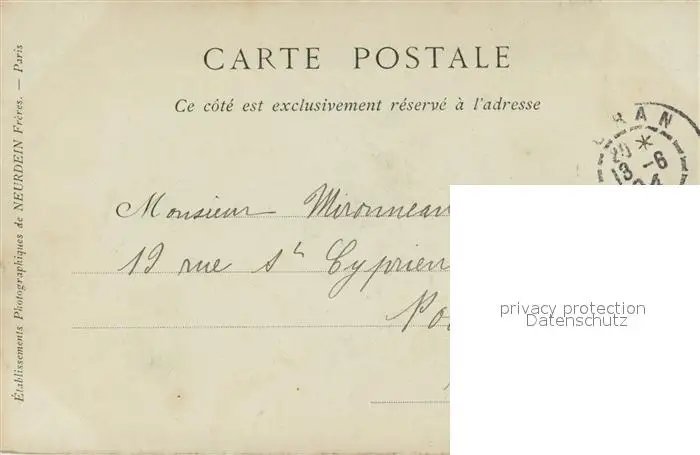 CARTE POSTALE
Ce côté est exclusivement réservé à l'adresse
Établissements Photographiques de NEURDEIN Frères. — Paris
ORAN
20 *
13-6
04
Monsieur Mironneau
19 rue St Cyprien
privacy protection
Datenschutz